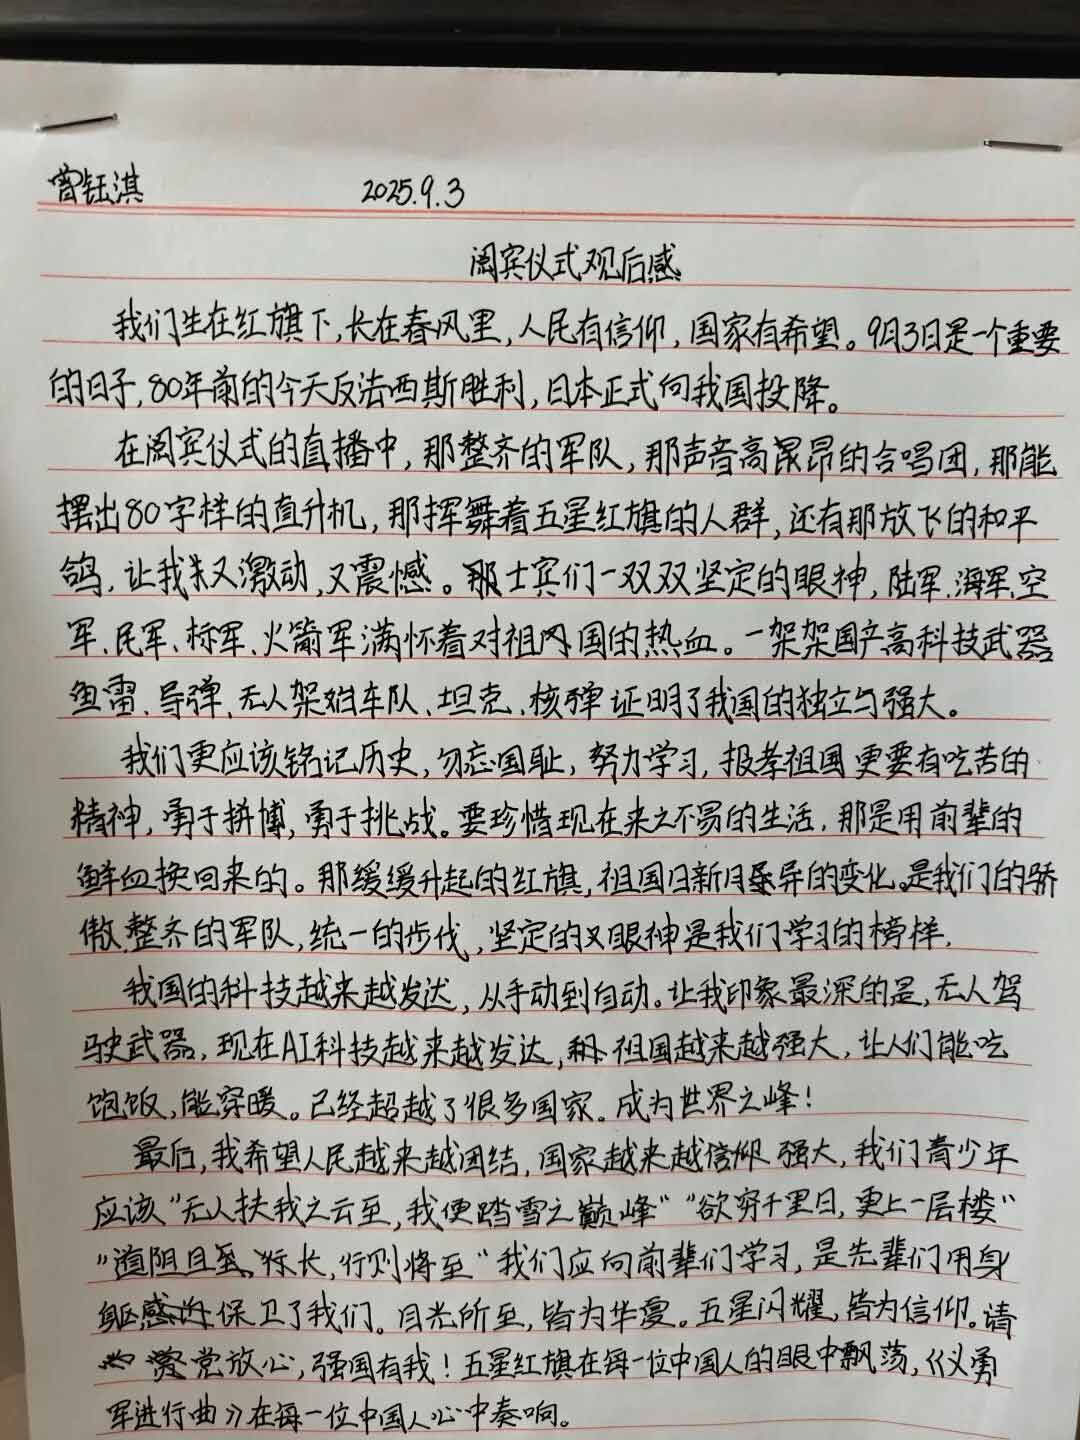 曾钰淇 2025.9.3
阅宾仪式观后感
我们生在红旗下,长在春风里,人民有信仰,国家有希望。9月3日是一个重要
的日子,80年前的今天反法西斯胜利,日本正式向我国投降。
在阅宾仪式的直播中,那整齐的军队,那声音高昂的合唱团,那能
摆出80字样的直升机,那挥舞着五星红旗的人群,还有那放飞的和平
鸽,让我又激动,又震憾。那士宾们一双双坚定的眼神,陆军、海军、空
军、民军、标军、火箭军满怀着对祖国的热血。一架架国产高科技武器
鱼雷、导弹、无人架驶车队、坦克、核弹证明了我国的独立与强大。
我们更应该铭记历史,勿忘国耻,努力学习,报孝祖国更要有吃苦的
精神,勇于拼博,勇于挑战。要珍惜现在来之不易的生活,那是用前辈的
鲜血换回来的。那缓缓升起的红旗,祖国日新月异的变化。是我们的骄
傲,整齐的军队,统一的步伐,坚定的眼神是我们学习的榜样.
我国的科技越来越发达,从手动到自动。让我印象最深的是,无人驾
驶武器,现在AI科技越来越发达,祖国越来越强大,让人们能吃
饱饭,能穿暖。已经超越了很多国家。成为世界之峰!
最后,我希望人民越来越团结,国家越来越信仰强大,我们青少年
应该"无人扶我之云至,我便踏雪之巅峰""欲穷千里目,更上一层楼"
"道阻且长,行则将至"我们应向前辈们学习,是先辈们用身
躯保卫了我们。目光所至,皆为华夏。五星闪耀,皆为信仰。请
党放心,强国有我!五星红旗在每一位中国人的眼中飘荡,《义勇
军进行曲》在每一位中国人心中奏响。